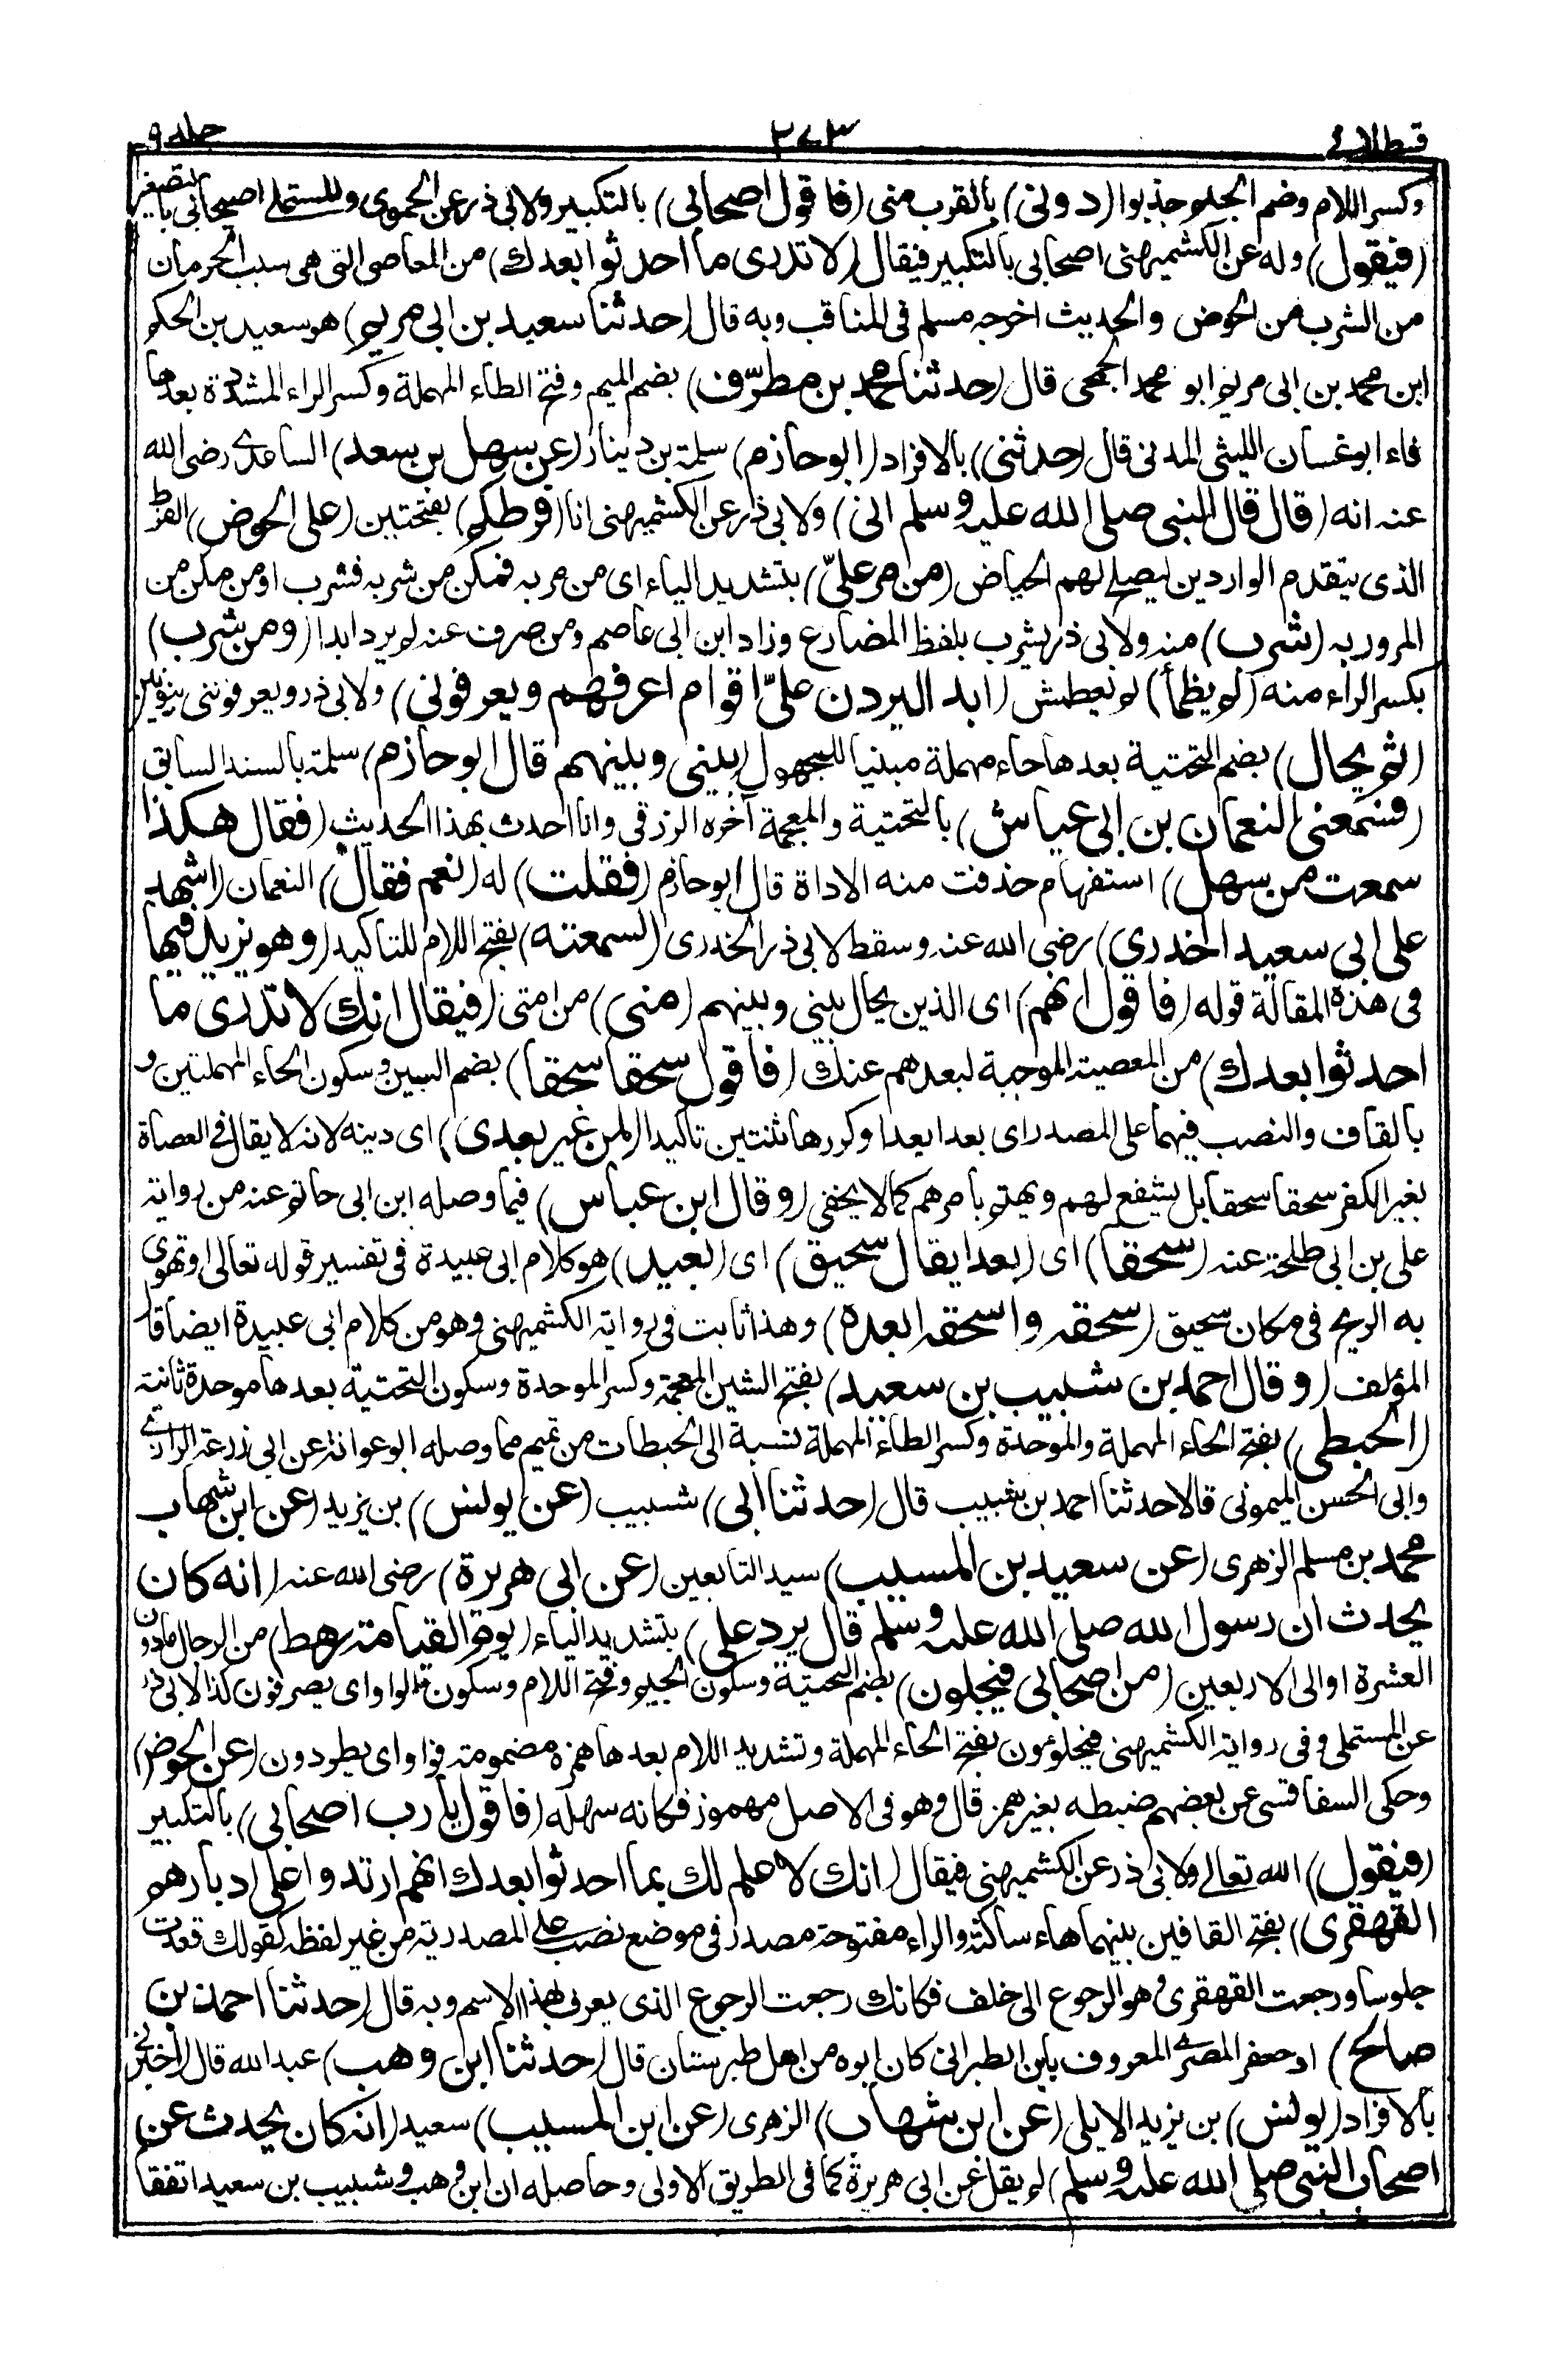 قسطلانی ۳۷۳ جلد ۹
وكسر اللام وضم الجيم جذبوا (دونى) بالقرب منى (فاقول اصحابى) بالتكبير ولابى ذر عن الحموى وللمستملے اصيحابى بالتصغير
(فيقول) وله عن الكشميهنى اصحابى بالتكبير فيقال (لا تدرى ما احدثوا بعدك) من المعاصى التى هى سبب الحرمان
من الشرب من الحوض والحديث اخرجه مسلم فى المناقب وبه قال (حدثنا سعيد بن ابى مريم) هو سعيد بن الحكم
ابن محمد بن ابى مريم ابو محمد الجمحى قال (حدثنا محمد بن مطرّف) بضم الميم وفتح الطاء المهملة وكسر الراء المشددة بعدها
فاء ابو غسان الليثى المدنى قال (حدثنى) بالافراد (ابو حازم) سلمة بن دينار (عن سهل بن سعد) الساعدى رضى الله
عنه انه (قال قال النبى صلى الله عليه وسلم انى) ولابى ذر عن الكشميهنى انا (فرطكم) بفتحتين (على الحوض) الفرط
الذى يتقدم الواردين ليصلح لهم الحياض (من مر علىّ) بتشديد الياء اى من مر به فمكن من شربه فشرب او من مكن من
المرور به (شرب) منه ولابى ذر يشرب بلفظ المضارع وزاد ابن ابى عاصم ومن صرف عنه لم يرد ابدا (ومن شرب)
بكسر الراء منه (لم يظمأ) لم يعطش (ابدا ليردن علىّ اقوام اعرفهم ويعرفونى) ولابى ذر ويعرفوننى بنونين
(ثم يحال) بضم التحتية بعدها حاء مهملة مبنيا للمجهول (بينى وبينهم قال ابو حازم) سلمة بالسند السابق
(فسمعنى النعمان بن ابى عياش) بالتحتية والمعجمة آخره الزرقى وانا احدث بهذا الحديث (فقال هكذا
سمعت من سهل) استفهام حذفت منه الاداة قال ابو حازم (فقلت) له (نعم فقال) النعمان (اشهد
على ابى سعيد الخدرى) رضى الله عنه وسقط لابى ذر الخدرى (لسمعته) بفتح اللام للتاكيد (وهو يزيد فيها
فى هذه المقالة قوله (فاقول انهم) اى الذين يحال بينى وبينهم (منى) من امتى (فيقال انك لا تدرى ما
احدثوا بعدك) من المعصية الموجبة لبعدهم عنك (فاقول سحقا سحقا) بضم السين وسكون الحاء المهملتين و
بالقاف والنصب فيهما على المصدر اى بعدا بعدا وكررها ثنتين تاكيدا (لمن غير بعدى) اى دينه لانه لا يقال فى العصاة
بغير الكفر سحقا سحقا بل يشفع لهم ويهتم بامرهم كما لا يخفى (وقال ابن عباس) فيما وصله ابن ابى حاتم عنه من رواية
على بن ابى طلحة عنه (سحقا) اى (بعدا يقال سحيق) اى (بعيد) هو كلام ابى عبيدة فى تفسير قوله تعالى او تهوى
به الريح فى مكان سحيق (سحقه واسحقه ابعده) وهذا ثابت فى رواية الكشميهنى وهو من كلام ابى عبيدة ايضا قا
المؤلف (وقال احمد بن شبيب بن سعيد) بفتح الشين المعجمة وكسر الموحدة وسكون التحتية بعدها موحدة ثانية
(الحبطى) بفتح الحاء المهملة والموحدة وكسر الطاء المهملة نسبة الى الحبطات من تميم مما وصله ابو عوانة عن ابى زرعة الرازى
وابى الحسن الميمونى قالا حدثنا احمد بن شبيب قال (حدثنا ابى) شبيب (عن يونس) بن يزيد (عن ابن شهاب
محمد بن مسلم الزهرى (عن سعيد بن المسيب) سيد التابعين (عن ابى هريرة) رضى الله عنه (انه كان
يحدث ان رسول الله صلى الله عليه وسلم قال يرد على) بتشديد الياء (يوم القيامة رهط) من الرجال ما دون
العشرة او الى الاربعين (من اصحابى فيجلون) بضم التحتية وسكون الجيم وفتح اللام وسكون الواو اى يصرفون كذا لابى ذر
عن المستملى وفى رواية الكشميهنى فيحلؤن بفتح الحاء المهملة وتشديد اللام بعدها همزة مضمومة فواو اى يطردون (عن الحوض)
وحكى السفاقسى عن بعضهم ضبطه بغير همز قال وهو فى الاصل مهموز فكانه سهله (فاقول يا رب اصحابى) بالتكبير
(فيقول) الله تعالے ولابى ذر عن الكشميهنى فيقال (انك لا علم لك بما احدثوا بعدك انهم ارتدوا على ادبارهم
القهقرى) بفتح القافين بينهما هاء ساكنة والراء مفتوحة مصدر فى موضع نصب علے المصدرية من غير لفظه كقولك قعدت
جلوسا ورجعت القهقرى وهو الرجوع الى خلف فكانك رجعت الرجوع الذى يعرف بهذا الاسم وبه قال (حدثنا احمد بن
صالح) ابو جعفر المصرى المعروف بابن الطبرانى كان ابوه من اهل طبرستان قال (حدثنا ابن وهب) عبد الله قال (اخبرنى
بالافراد (يونس) بن يزيد الايلى (عن ابن شهاب) الزهرى (عن ابن المسيب) سعيد (انه كان يحدث عن
اصحاب النبى صلى الله عليه وسلم) لم يقل عن ابى هريرة كما فى الطريق الاولى وحاصله ان ابن وهب وشبيب بن سعيد اتفقا